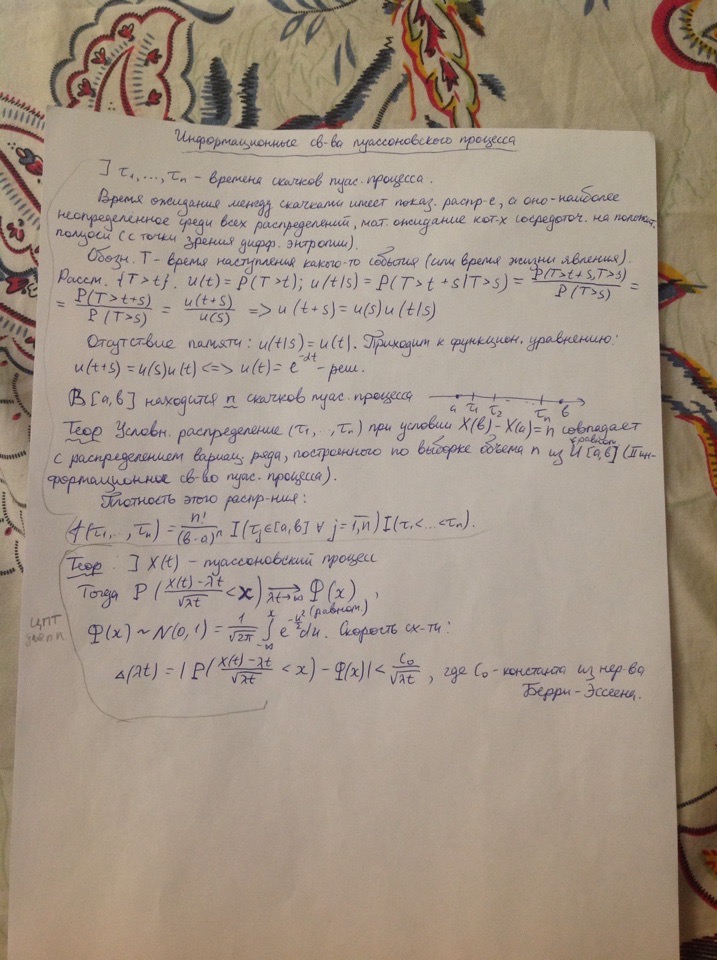 Информационные св-ва пуассоновского процесса
] τ₁,...,τₙ - времена скачков пуас. процесса.
Время ожидания между скачками имеет показ. распр-е, а оно - наиболее
неопределённое среди всех распределений, мат. ожидание кот-х сосредоточ. на полож.
полуоси (с точки зрения дифф. энтропии).
Обозн. T - время наступления какого-то события (или время жизни явления).
Рассм. {T>t}. u(t) = P(T>t); u(t|s) = P(T>t+s|T>s) = P(T>t+s,T>s)/P(T>s) =
= P(T>t+s)/P(T>s) = u(t+s)/u(s) => u(t+s) = u(s)u(t|s)
Отсутствие памяти: u(t|s) = u(t). Приходим к функцион. уравнению:
u(t+s) = u(s)u(t) <=> u(t) = e^{-αt} - реш.
В [a,b] находится n скачков пуас. процесса
a τ₁ τ₂ ... τₙ b
Теор Условн. распределение (τ₁,..,τₙ) при условии X(b)-X(a)=n совпадает
с распределением вариац. ряда, построенного по выборке объема n из U[a,b] (II ин-
равном.
формационное св-во пуас. процесса).
Плотность этого распр-ния:
f(τ₁,..,τₙ) = n!/(b-a)ⁿ I(τⱼ∈[a,b] ∀ j=1,n) I(τ₁<...<τₙ).
Теор: ] X(t) - пуассоновский процесс
Тогда P(X(t)-λt/√λt < x) ⟹ Φ(x),
λt→∞
(равном.)
Φ(x) ~ N(0,1) = 1/√2π ∫_{-∞}^{x} e^{-u²/2} du. Скорость сх-ти:
ЦПТ
Δ(λt) = |P(X(t)-λt/√λt < x) - Φ(x)| < C₀/√λt, где C₀ - константа из нер-ва
Берри-Эссеена.